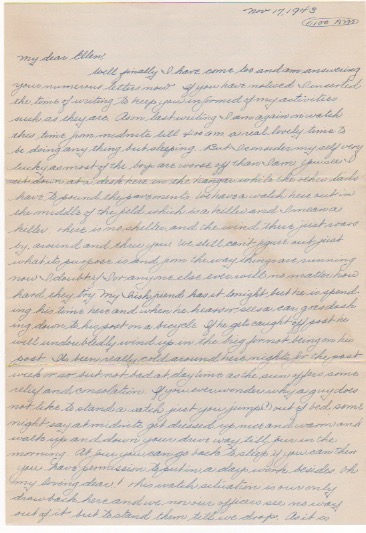 Nov 17, 1943
0100 A.M.
My dear Ellen,
Well finally I have come too and am answering
your numerous letters now. If you have noticed I inserted
the time of writing to keep you informed of my activities
such as they are. As in last writing I am again on watch
this time from midnite till am a real lovely time to
be doing any thing but sleeping. But I consider my self very
lucky as most of the boys are worse off than I am. You see I
set down at a desk here in the hangar while the rest
have to pound the pavements. We have a watch here out in
the middle of the field which is a killer and I mean a
killer. There is no shelter and the wind just roars
by around and thru you. We still can't figure out just
what its purpose is and from the way things are running
now I doubt if I or anyone else ever will no matter how
hard they try. My Irish friend has it tonight but he is spend-
ing his time here and when he hears or sees a car goes dash-
ing down to his post on a bicycle. If he gets caught off post he
will undoubtedly wind up in the brig for not being on his
post. Its been really cold around here nights for the past
week or so but not bad at day time as the sun offers some
relief and consolation. If you ever wonder why a guy does
not like to stand a watch just you jump out of bed some
night say at midnite get dressed up nice and warm and
walk up and down your drive way till four in the
morning. At four you can go back to sleep if you can then
you have permission to put in a days work besides. Oh
my loving dear! This watch situation is our only
draw back here and we nor our officers see no way
out of it but to stand them till we drop. As it is